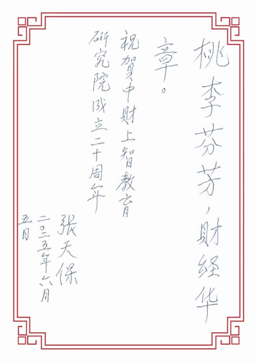 桃李芬芳，财经华
章。
祝贺中财上智教育
研究院成立二十周年
張天保
二〇二五年六月
五日